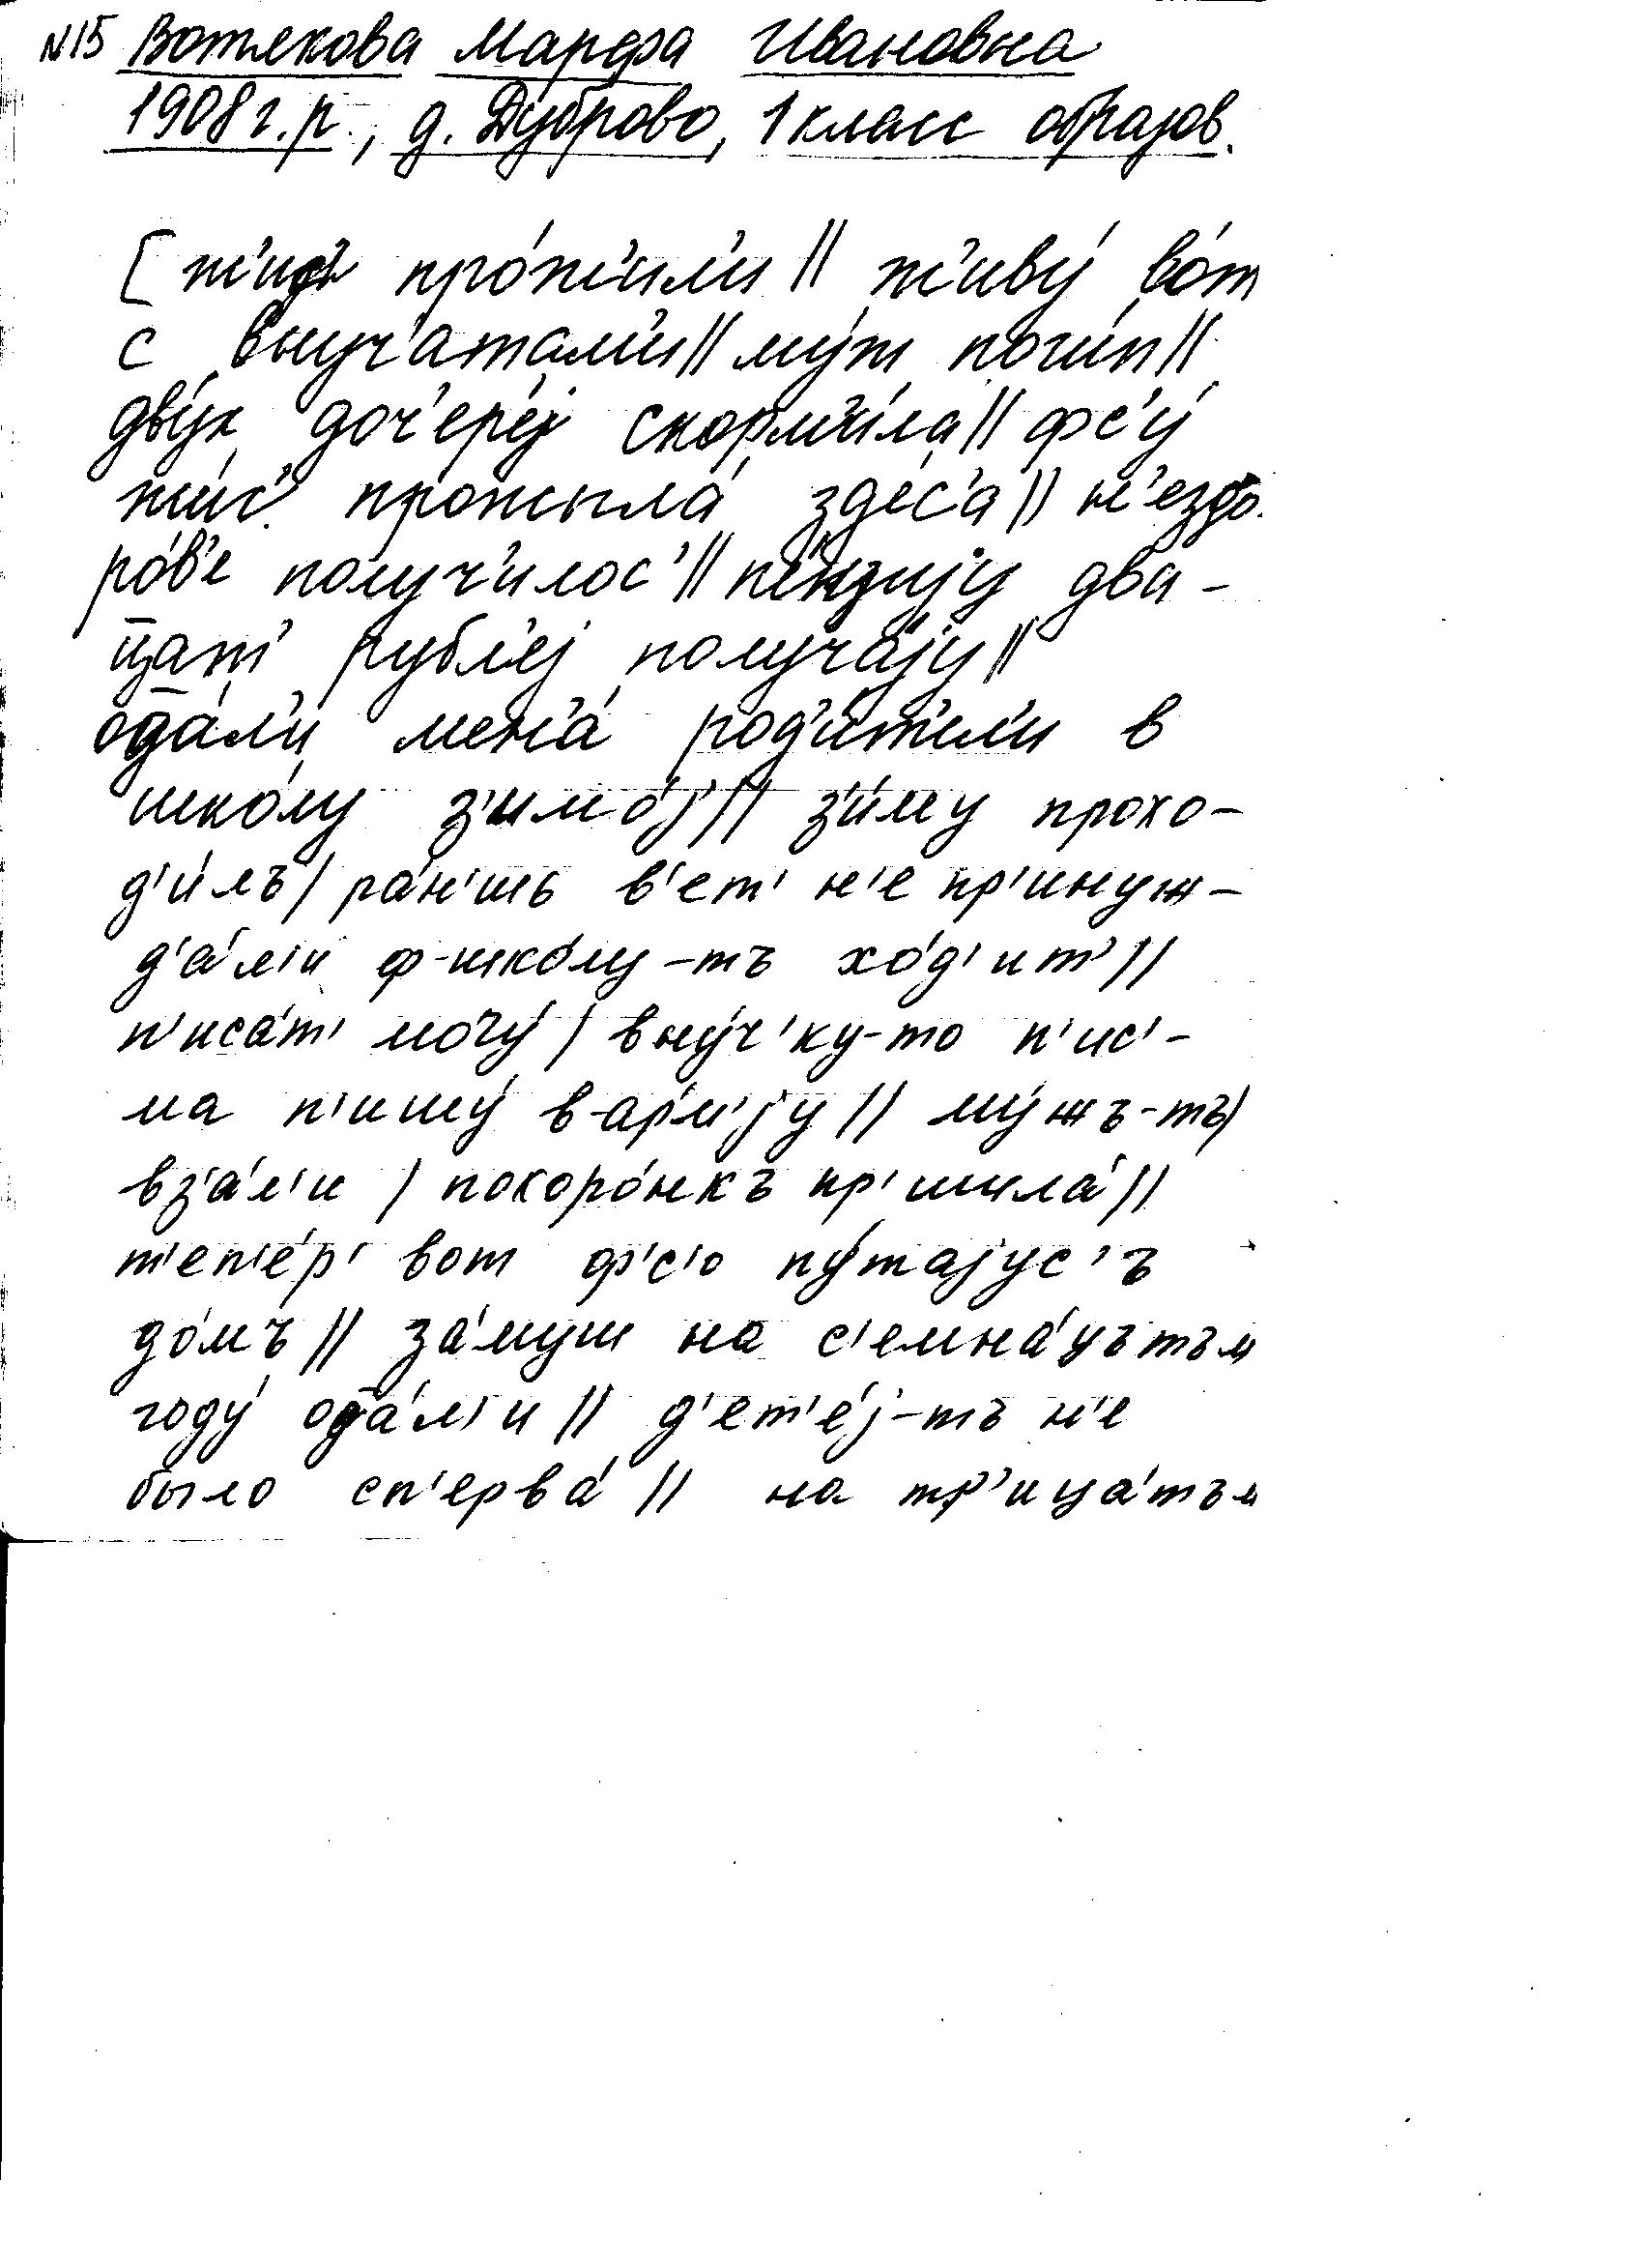 N15 Вотекова Марфа Ивановна
1908 г.р., д. Дуброво, 1 класс образов.
[ про́ж'ил'и || ж'иву́ во́т
с внуч'а́там'и || му́ж поги́п ||
дву́х доч'ере́j скорм'и́ла || фс'у́
жы́с' прожыла́ зде́с'а || н'ездо-
ро́в'е получ'и́лос' || пе́нз'иjу два-
ц̄ат' рубл'е́j получа́jу ||
од̄а́л'и мен'а́ род'и́т'ил'и в
шко́лу з'имо́j || з'и́му прохо-
д'и́лъ | ра́н'шъ в'ет' н'е пр'инуж-
д'а́л'и ф-шко́лу-тъ хо́д'ит' ||
п'иса́т' могу́ | вну́ч'ку-то п'ис'-
ма п'ишу́ в-а́рм'иjу || му́жъ-тъ |
вз'а́л'и | похоро́нкъ пр'ишла́ ||
т'еп'е́р' вот ф'с'о пу́таjус'ъ
до́мъ || за́муш на с'емна́цътъм
году́ од̄а́л'и || д'ет'е́j-тъ н'е
было сп'ерва́ || на тр'ица́тъм